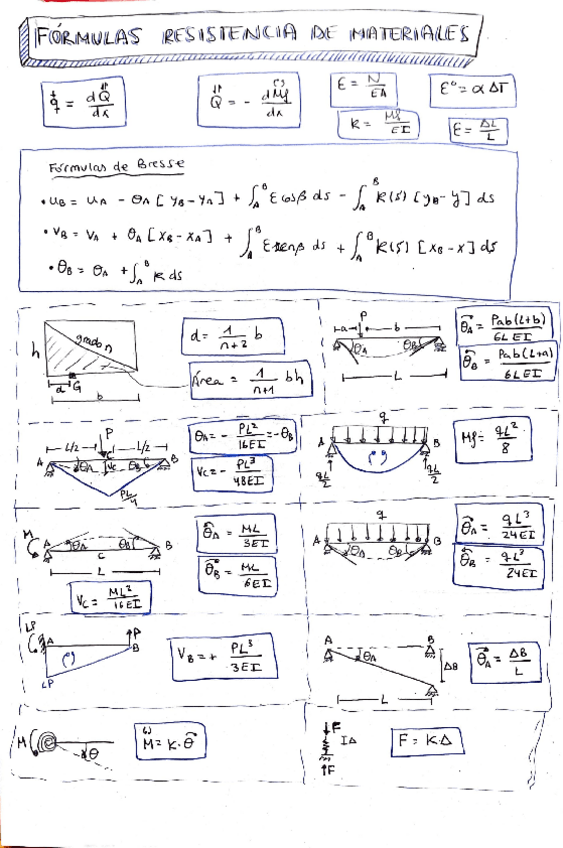 FÓRMULAS RESISTENCIA DE MATERIALES
q = dQ/dx
Q = - dMf/dx
ε = N/EA
ε⁰ = α ΔT
k = Mf/EI
ε = ΔL/L
Fórmulas de Bresse
• u_B = u_A - θ_A [y_B - y_A] + ∫_A^B ε cos β ds - ∫_A^B k(s) [y_B - y] ds
• v_B = v_A + θ_A [x_B - x_A] + ∫_A^B ε sen β ds + ∫_A^B k(s) [x_B - x] ds
• θ_B = θ_A + ∫_A^B k ds
h
grado n
d
G
b
d = 1/(n+2) b
Área = 1/(n+1) bh
P
a
b
θ_A
θ_B
L
θ_A = Pab(L+b)/6LEI
θ_B = Pab(L+a)/6LEI
L/2
P
L/2
A
θ_A
C
V_C
θ_B
B
PL/4
θ_A = - PL²/16EI = -θ_B
V_C = - PL³/48EI
q
A
B
qL/2
(+)
qL/2
Mf = qL²/8
M
A
θ_A
C
θ_B
B
L
θ_A = ML/3EI
θ_B = ML/6EI
V_C = ML²/16EI
q
A
θ_A
θ_B
B
L
θ_A = qL³/24EI
θ_B = qL³/24EI
LP
A
P
B
LP
V_B = + PL³/3EI
A
θ_A
B
ΔB
L
θ_A = ΔB/L
M
θ
M = K·θ
F
IΔ
F
F = K·Δ